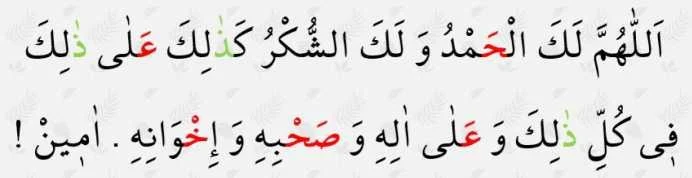 اَللّٰهُمَّ لَكَ الْحَمْدُ وَ لَكَ الشُّكْرُ كَذٰلِكَ عَلٰى ذٰلِكَ
فِى كُلِّ ذٰلِكَ وَ عَلٰى اٰلِهِ وَ صَحْبِهِ وَ إِخْوَانِهِ . اٰمِينْ !